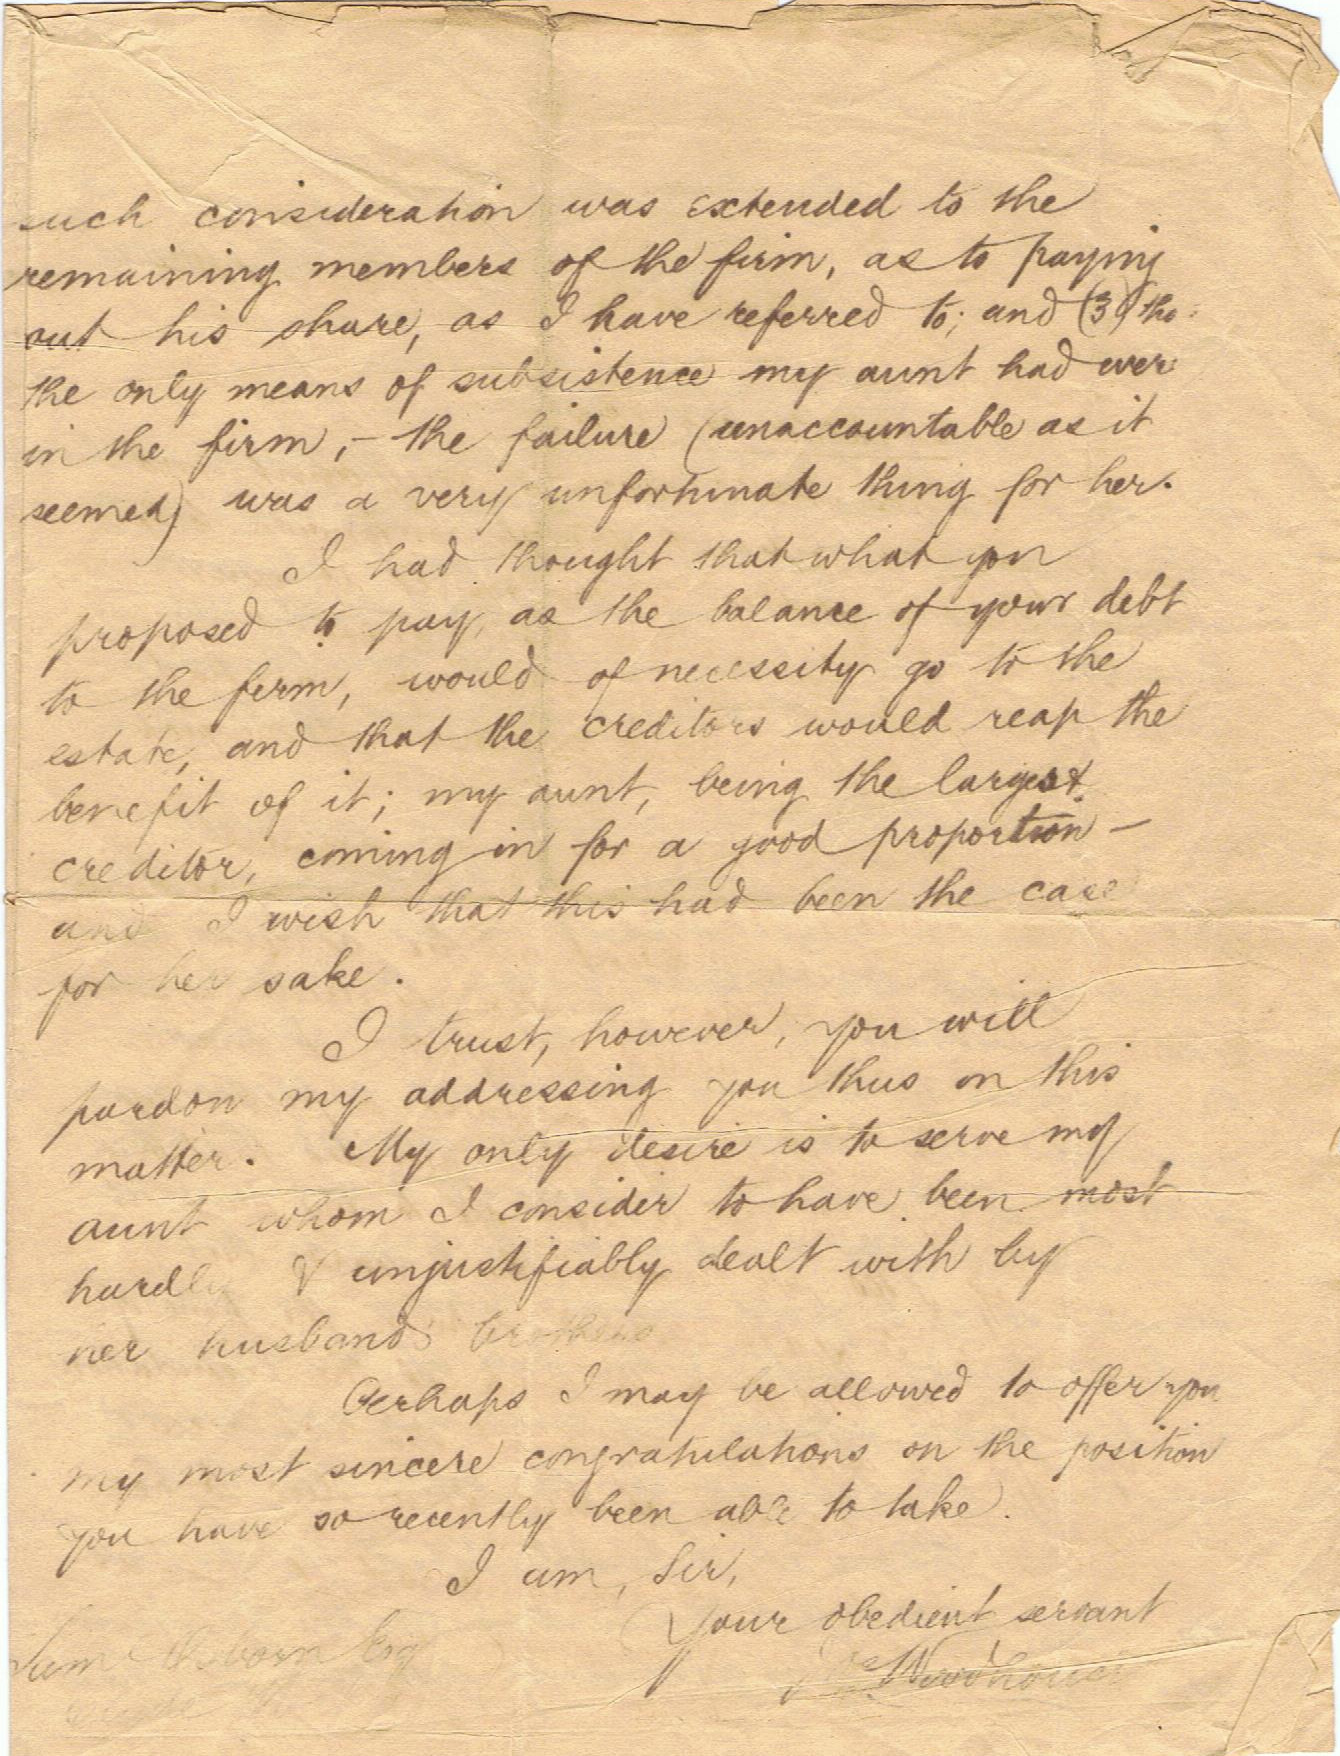 such consideration was extended to the
remaining members of the firm, as to paying
out his share, as I have referred to; and (3) tho:
the only means of subsistence my aunt had were
in the firm, – the failure (unaccountable as it
seemed) was a very unfortunate thing for her.
I had thought that what you
proposed to pay, as the balance of your debt
to the firm, would of necessity go to the
estate, and that the creditors would reap the
benefit of it; my aunt, being the largest
creditor, coming in for a good proportion –
and I wish that this had been the case
for her sake.
I trust, however, you will
pardon my addressing you thus on this
matter. My only desire is to serve my
aunt whom I consider to have been most
hardly & unjustifiably dealt with by
her husbands brothers
Perhaps I may be allowed to offer you
my most sincere congratulations on the position
you have so recently been able to take.
I am, Sir,
Your obedient servant
Woodhouse
Osborn Esq